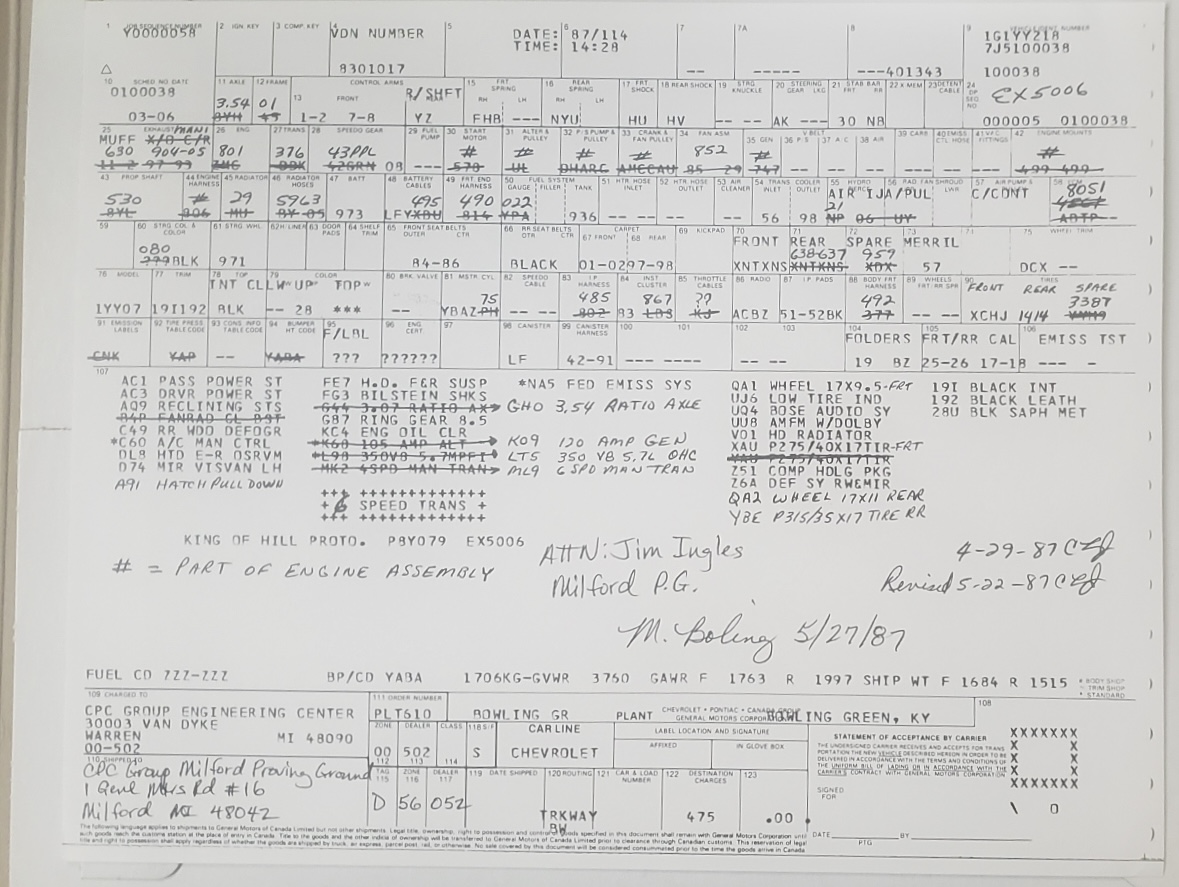 1 JOB SEQUENCE NUMBER 2 IGN. KEY 3 COMP. KEY 4 5 6 7 7A 8 9 VEHICLE IDENT. NUMBER
Y0000058 VDN NUMBER DATE: 87/114 1G1YY218
TIME: 14:28 7J5100038
8301017 -- ----- ---401343 100038
10 SCHED NO. DATE 11 AXLE 12 FRAME CONTROL ARMS 15 FRT. SPRING 16 REAR SPRING 17 FRT. SHOCK 18 REAR SHOCK 19 STRG KNUCKLE 20 STEERING GEAR LKG 21 STAB BAR FRT RR 22 X MEM 23 DETENT CABLE 24 DP SEQ NO
0100038 3.54 01 13 FRONT R/SHFT RH LH RH LH EX5006
03-06 1-2 7-8 YZ FHB --- NYU HU HV AK --- 30 NB 000005 0100038
25 EXHAUST MANI 26 ENG 27 TRANS 28 SPEEDO GEAR 29 FUEL PUMP 30 START MOTOR 31 ALTER & PULLEY 32 P/S PUMP & PULLEY 33 CRANK & FAN PULLEY 34 FAN ASM 35 GEN V BELT 36 P/S 37 A/C 38 AIR 39 CARB 40 EMISS. CTL HOSE 41 V.F.C. FITTINGS 42 ENGINE MOUNTS
MUFF X/B C/R
630 904-05 801 376 43PPL # # # # 852 # #
11-2 97-99 ZMC BBK 42GRN 08 --- 570 UL DHARG AHCCAU 85 29 747 499 499
43 PROP SHAFT 44 ENGINE HARNESS 45 RADIATOR 46 RADIATOR HOSES 47 BATT 48 BATTERY CABLES 49 FRT. END HARNESS 50 FUEL SYSTEM GAUGE FILLER TANK 51 HTR. HOSE INLET 52 HTR. HOSE OUTLET 53 AIR CLEANER 54 TRANS. COOLER INLET OUTLET 55 HYDRO 56 RAD FAN SHROUD LWR 57 AIR PUMP & 58 ECM
AIR TJA/PUL C/CONT 8051
530 # 29 5963 495 490 022 21
BYL 806 MU BY 05 973 LFYXBU 814 YPA 936 -- -- -- -- 56 98 NP 06 UY ABTP
59 60 STRG COL & COLOR 61 STRG WHL 62 H/LINER 63 DOOR PADS 64 SHELF TRIM 65 FRONT SEAT BELTS OUTER CTR 66 RR SEAT BELTS OTR CTR CARPET 67 FRONT 68 REAR 69 KICKPAD 70 71 72 73 74 75 WHEEL TRIM
FRONT REAR SPARE MERRIL
080 638-637 959
???BLK 971 84-86 BLACK 01-0297-98 XNTXNS XNTXNS XDX 57 DCX --
76 MODEL 77 TRIM 78 TOP 79 COLOR 80 BRK VALVE 81 MSTR. CYL 82 SPEEDO CABLE 83 I.P. HARNESS 84 INST CLUSTER 85 THROTTLE CABLES 86 RADIO 87 I.P. PADS 88 BODY FRT HARNESS 89 WHEELS FRT-RR SPR 90
TNT CLLW"UP" TOP" FRONT REAR SPARE
75 485 867 ?? 492 3387
1YY07 19I192 BLK -- 28 *** -- YBAZPH 802 83 LBS KJ ACBZ 51-52BK 377 -- -- XCHJ 1414
91 EMISSION LABELS 92 TIRE PRESS TABLE CODE 93 CONS INFO TABLE CODE 94 BUMPER HT CODE 95 96 ENG CERT. 97 98 CANISTER 99 CANISTER HARNESS 100 101 102 103 104 105 106
F/LBL FOLDERS FRT/RR CAL EMISS TST
CNK YAP -- YABA ??? ?????? LF 42-91 --- ---- -- -- 19 BZ 25-26 17-18 --- -
107
AC1 PASS POWER ST FE7 H.D. F&R SUSP *NA5 FED EMISS SYS QA1 WHEEL 17X9.5-FRT 19I BLACK INT
AC3 DRVR POWER ST FG3 BILSTEIN SHKS UJ6 LOW TIRE IND 192 BLACK LEATH
AQ9 RECLINING STS G44 3.07 RATIO AX GHO 3.54 RATIO AXLE UQ4 BOSE AUDIO SY 28U BLK SAPH MET
G87 RING GEAR 8.5 UU8 AMFM W/DOLBY
C49 RR WDO DEFOGR KC4 ENG OIL CLR V01 HD RADIATOR
*C60 A/C MAN CTRL *K68 105 AMP ALT KO9 120 AMP GEN XAU P275/40X17TIR-FRT
DL8 HTD E-R OSRVM *L98 350V8 5.7MPFI LT5 350 V8 5.7L OHC YAU P275/40X17TIR
D74 MIR VISVAN LH MK2 4SPD MAN TRAN ML9 6 SPD MAN TRAN Z51 COMP HDLG PKG
A91 HATCH PULL DOWN Z6A DEF SY RW&MIR
+++ +++++++++++++ QA2 WHEEL 17X11 REAR
+6 SPEED TRANS +
+++ +++++++++++++ YBE P315/35X17 TIRE RR
KING OF HILL PROTO. P8Y079 EX5006 Attn: Jim Ingles 4-29-87
# = PART OF ENGINE ASSEMBLY Milford P.G. Revised 5-22-87
M. Boling 5/27/87
FUEL CD ZZZ-ZZZ BP/CD YABA 1706KG-GVWR 3760 GAWR F 1763 R 1997 SHIP WT F 1684 R 1515 * BODY SHOP
~ TRIM SHOP
* STANDARD
109 CHARGED TO 111 ORDER NUMBER CHEVROLET • PONTIAC • CANADA GROUP 108
CPC GROUP ENGINEERING CENTER PLT610 BOWLING GR PLANT GENERAL MOTORS CORPORATION BOWLING GREEN, KY
30003 VAN DYKE ZONE DEALER CLASS 118 S/F CAR LINE LABEL LOCATION AND SIGNATURE STATEMENT OF ACCEPTANCE BY CARRIER XXXXXXX
WARREN MI 48090 AFFIXED IN GLOVE BOX THE UNDERSIGNED CARRIER RECEIVES AND ACCEPTS FOR TRANS X X
00-502 00 502 S CHEVROLET PORTATION THE NEW VEHICLE DESCRIBED HEREON IN ORDER TO BE X X
112 113 114 DELIVERED IN ACCORDANCE WITH THE TERMS AND CONDITIONS OF X X
110 SHIPPED TO TAG 115 ZONE 116 DEALER 117 119 DATE SHIPPED 120 ROUTING 121 CAR & LOAD NUMBER 122 DESTINATION CHARGES 123 THE UNIFORM BILL OF LADING OR IN ACCORDANCE WITH THE X X
CARRIER'S CONTRACT WITH GENERAL MOTORS CORPORATION XXXXXXX
CPC Group Milford Proving Ground
1 Genl Mtrs Rd #16 D 56 052 SIGNED FOR \ 0
Milford MI 48042 TRKWAY 475 .00
BW
The following language applies to shipments to General Motors of Canada Limited but not other shipments. Legal title, ownership, right to possession and control of goods specified in this document shall remain with General Motors Corporation until DATE BY
such goods reach the customs station at the place of entry in Canada. Title to the goods and the other indicia of ownership will be transferred to General Motors of Canada Limited prior to clearance through Canadian customs. This reservation of legal PTG
title and right to possession shall apply regardless of whether the goods are shipped by truck, air express, parcel post, rail, or otherwise. No sale covered by this document will be considered consummated prior to the time the goods arrive in Canada.